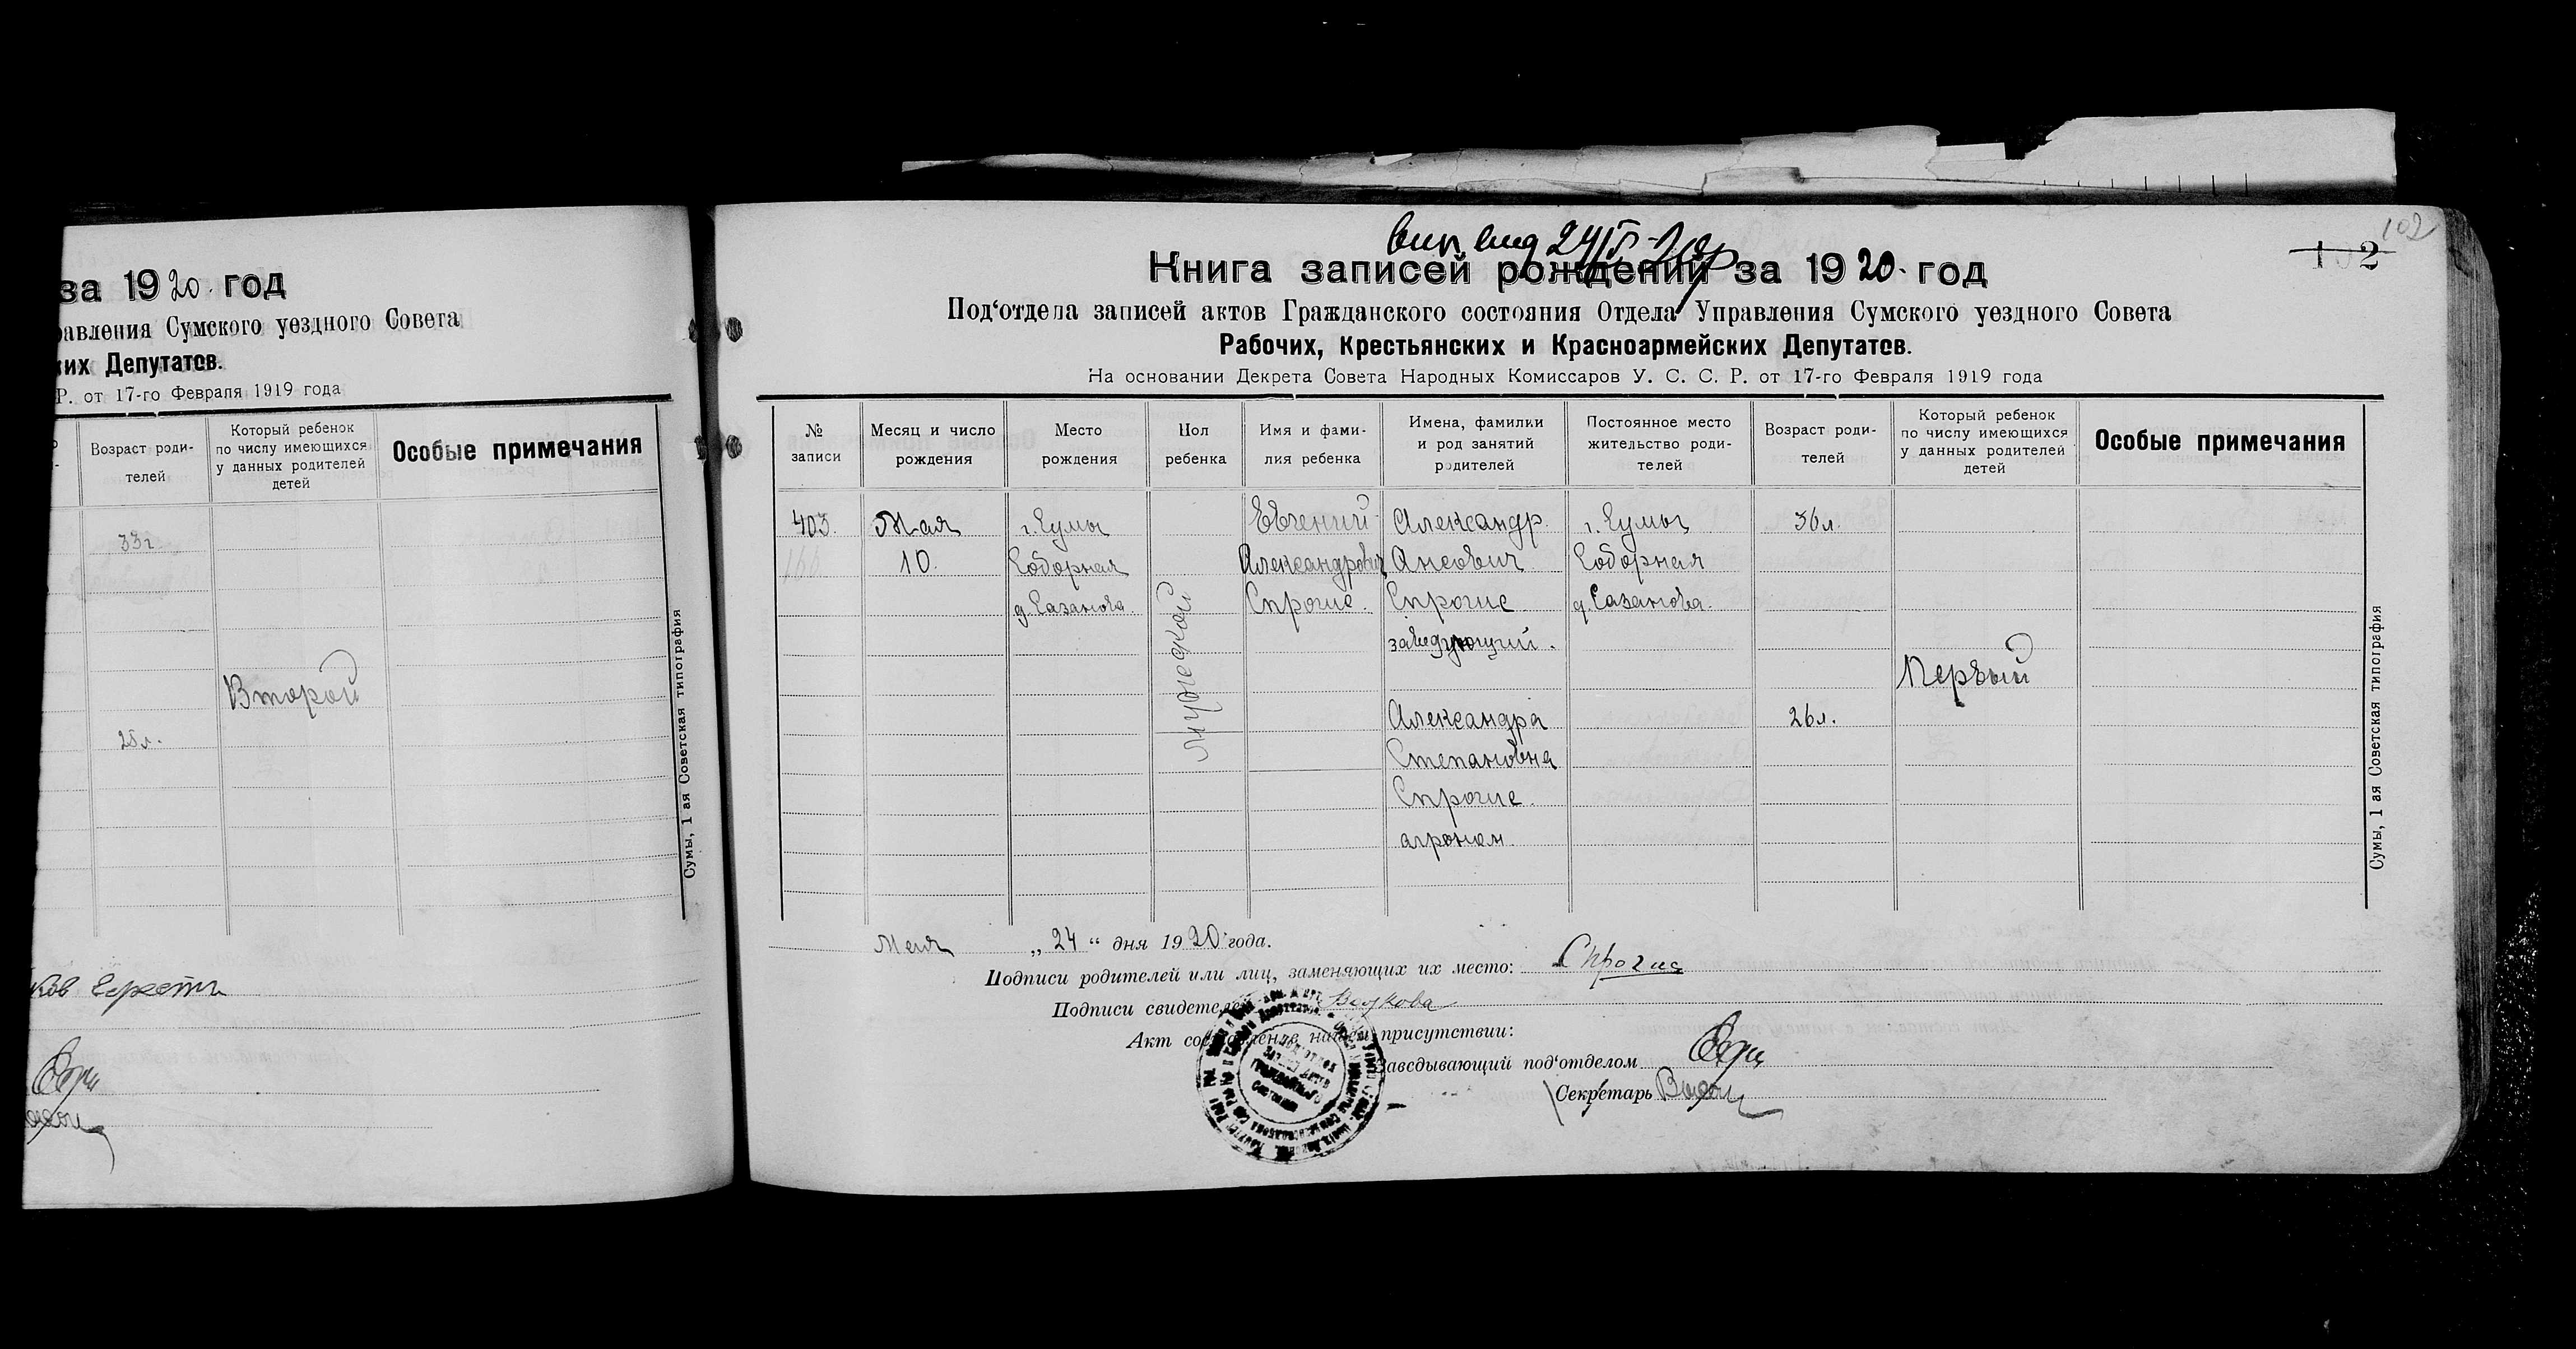 за 1920 год
равления Сумского уездного Совета
ких Депутатов.
Р. от 17-го Февраля 1919 года
Возраст роди-
телей
Который ребенок
по числу имеющихся
у данных родителей
детей
Особые примечания
33 г.
Второй
Сумы, 1 ая Советская типография
Книга записей рождений за 1920 год
102
Под‘отдела записей актов Гражданского состояния Отдела Управления Сумского уездного Совета
Рабочих, Крестьянских и Красноармейских Депутатов.
На основании Декрета Совета Народных Комиссаров У. С. С. Р. от 17-го Февраля 1919 года
№
записи
Месяц и число
рождения
Место
рождения
Пол
ребенка
Имя и фами-
лия ребенка
Имена, фамилии
и род занятий
родителей
Постоянное место
жительство роди-
телей
Возраст роди-
телей
Который ребенок
по числу имеющихся
у данных родителей
детей
Особые примечания
403.
Мая
10.
г. Сумы
Соборная
д. Сазанова
Мужеской
Евгений
Александрович
Спрогис.
Александр
Ансович
Спрогис
заведующий.
Александра
Степановна
Спрогис.
агроном.
г. Сумы
Соборная
д. Сазанова.
36 л.
26 л.
Первый
Сумы, 1 ая Советская типография
Мая „24“ дня 1920 года.
Подписи родителей или лиц, заменяющих их место: Спрогис
Подписи свидетеле
Акт присутствии:
Заведывающий под‘отделом
Секретарь